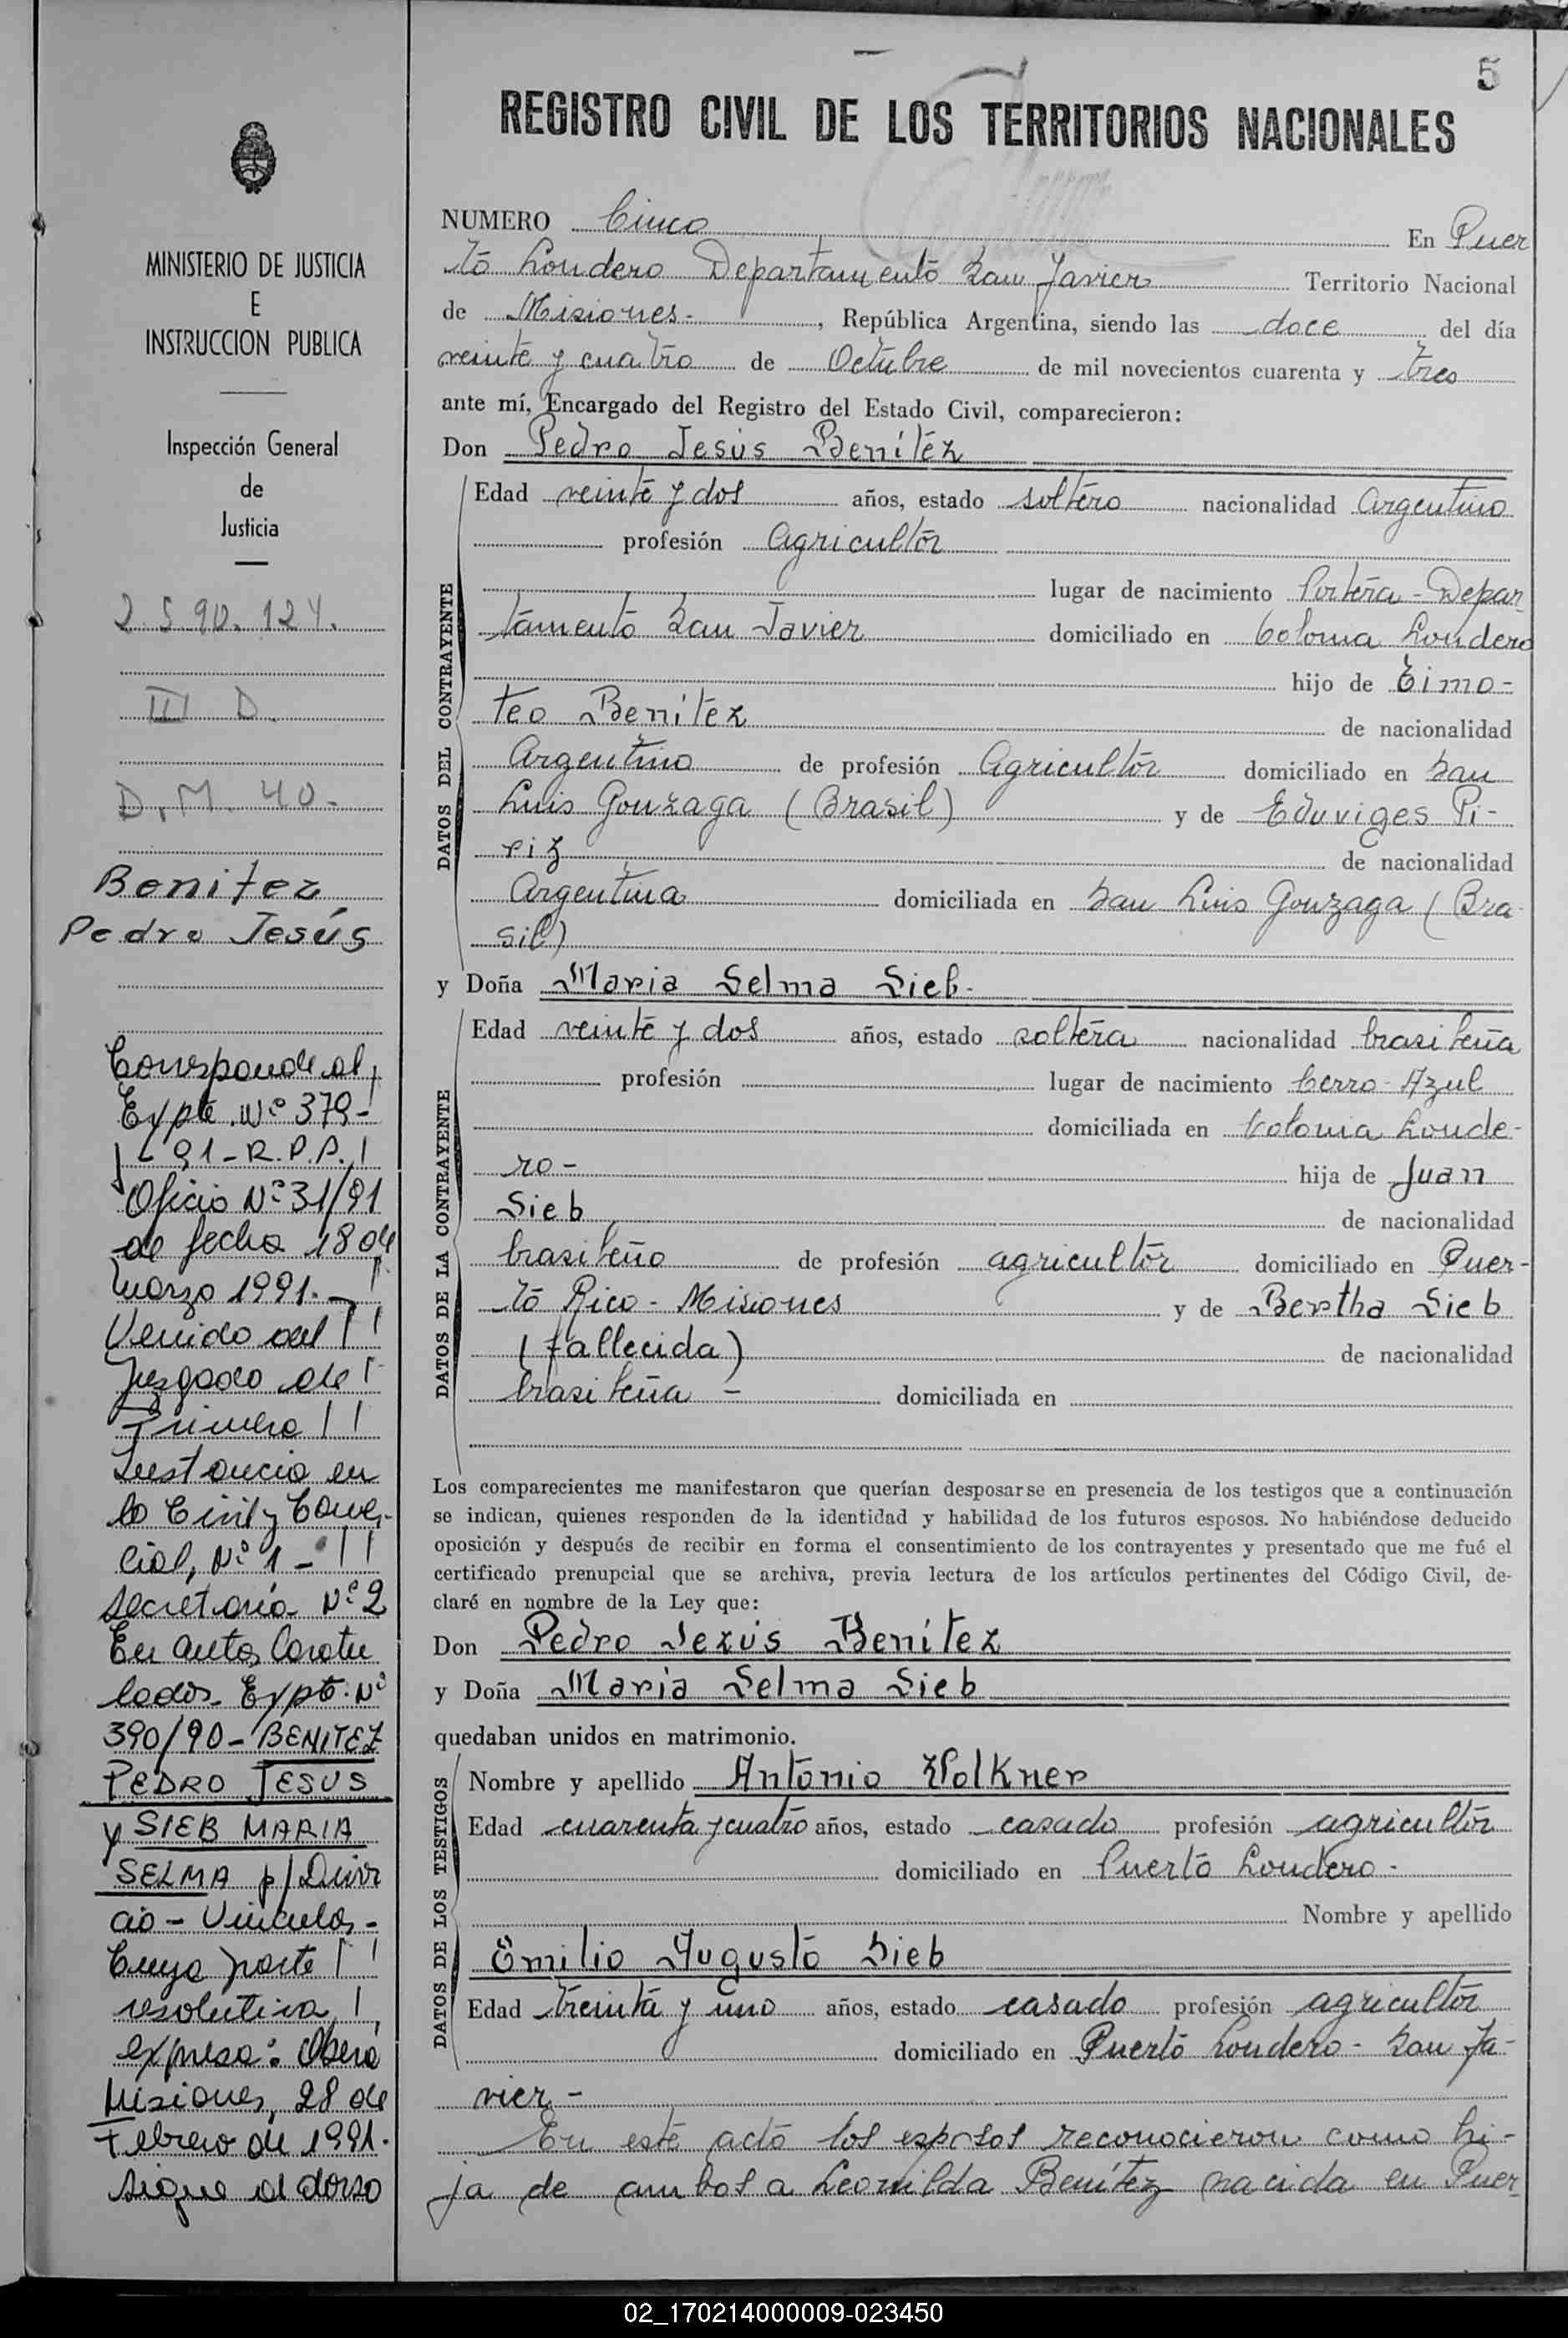 5
REGISTRO CIVIL DE LOS TERRITORIOS NACIONALES
MINISTERIO DE JUSTICIA
E
INSTRUCCION PUBLICA
Inspección General
de
Justicia
2.590.124.
III D.
D.M. 40-
Benitez
Pedro Jesús
Corresponde al
Expte. Nº 379-
91-R.P.P.
Oficio Nº 31/91
de fecha 18 de
marzo 1991.-
Venido del
Juzgado de
Primera
Instancia en
lo Civil y Comer-
cial, Nº 1-
Secretaria Nº 2
En autos Caratu
lados Expte. Nº
390/90-BENITEZ
PEDRO JESUS
y SIEB MARIA
SELMA p/Divor
cio-Vincular-
Cuya parte
resolutiva
expresa: Oberá
Misiones, 28 de
Febrero de 1991.
sigue al dorso
NUMERO Cinco En Puer
to Londero Departamento San Javier Territorio Nacional
de Misiones.-, República Argentina, siendo las doce del día
veinte y cuatro de Octubre de mil novecientos cuarenta y tres
ante mí, Encargado del Registro del Estado Civil, comparecieron:
Don Pedro Jesús Benítez
DATOS DEL CONTRAYENTE
Edad veinte y dos años, estado soltero nacionalidad argentino
profesión agricultor
lugar de nacimiento Porteña-Depar
tamento San Javier domiciliado en Colonia Londero
hijo de Timo-
teo Benítez de nacionalidad
argentino de profesión agricultor domiciliado en San
Luis Gonzaga (Brasil) y de Eduviges Pi-
riz de nacionalidad
argentina domiciliada en San Luis Gonzaga (Bra-
sil)
y Doña Maria Selma Sieb-
DATOS DE LA CONTRAYENTE
Edad veinte y dos años, estado soltera nacionalidad brasileña
profesión lugar de nacimiento Cerro-Azul
domiciliada en Colonia Londe-
ro- hija de Juan
Sieb de nacionalidad
brasileño de profesión agricultor domiciliado en Puer-
to Rico-Misiones y de Bertha Sieb
(fallecida) de nacionalidad
brasileña- domiciliada en
Los comparecientes me manifestaron que querían desposarse en presencia de los testigos que a continuación
se indican, quienes responden de la identidad y habilidad de los futuros esposos. No habiéndose deducido
oposición y después de recibir en forma el consentimiento de los contrayentes y presentado que me fué el
certificado prenupcial que se archiva, previa lectura de los artículos pertinentes del Código Civil, de-
claré en nombre de la Ley que:
Don Pedro Jezús Benítez
y Doña Maria Selma Sieb
quedaban unidos en matrimonio.
DATOS DE LOS TESTIGOS
Nombre y apellido Antonio Wolkner
Edad cuarenta y cuatro años, estado casado profesión agricultor
domiciliado en Puerto Londero-
Nombre y apellido
Emilio Augusto Sieb
Edad treinta y uno años, estado casado profesión agricultor
domiciliado en Puerto Londero-San Ja-
vier-
En este acto los esposos reconocieron como hi-
ja de ambos a Leonilda Benítez nacida en Puer
02_170214000009-023450